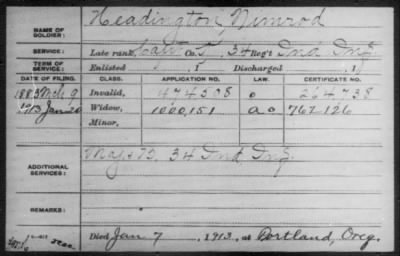 NAME OF SOLDIER: Headington, Nimrod
SERVICE: Late rank, Capt Co. 34 Reg't Ind Inf.
TERM OF SERVICE: Enlisted , 1 Discharged , 1
DATE OF FILING. CLASS. APPLICATION NO. LAW. CERTIFICATE NO.
1883 Mch 9 Invalid, 474508 0 264738
1913 Jan 20 Widow, 1000,151 762126
Minor,
ADDITIONAL SERVICES: Maj + 34 Ind. Inf.
REMARKS:
Died Jan 7, 1913, at Portland, Oreg.